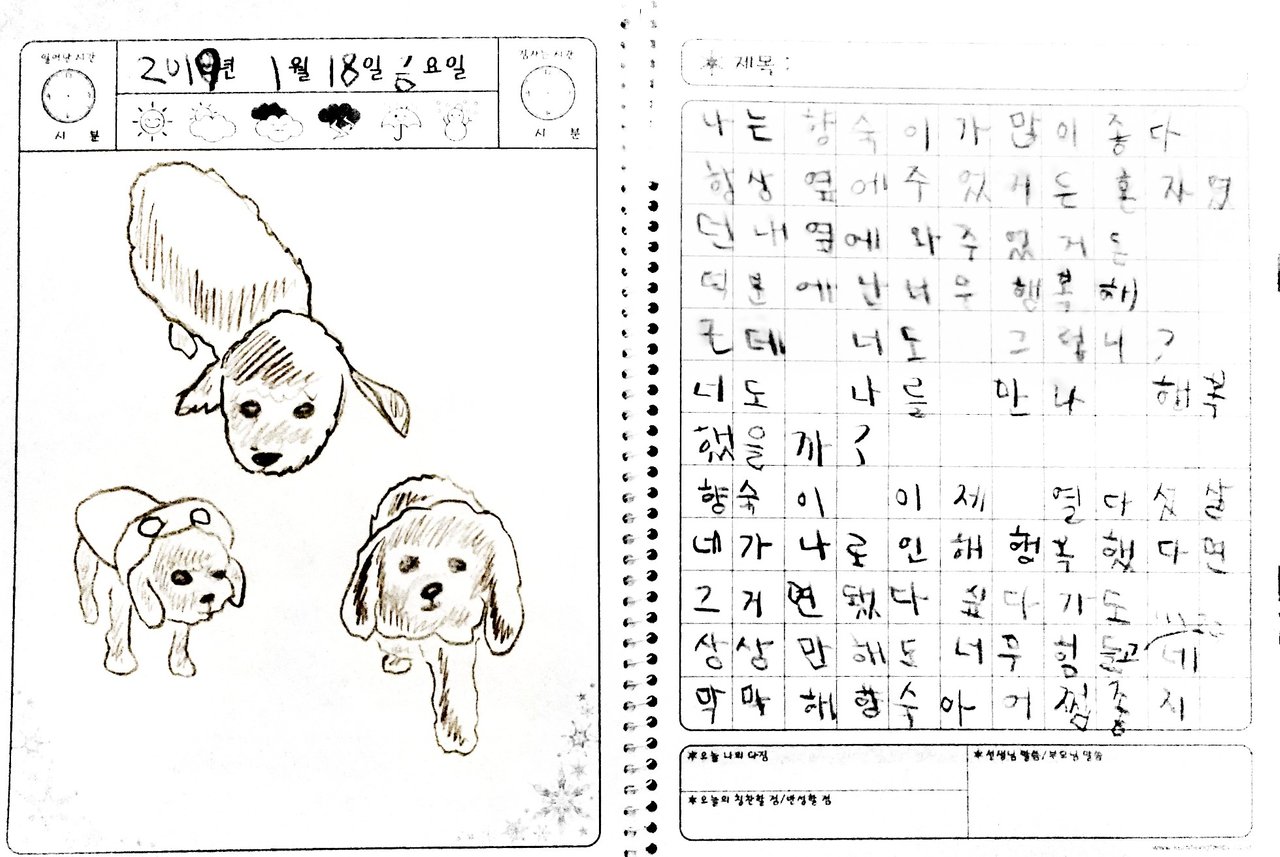 일어난 시간
시 분
2019년 1월 18일 금요일
잠자는 시간
시 분
* 제목 :
나는 향숙이가 많이 좋다
항상 옆에 주었거든 혼자였
던 내 옆에 와주었거든
덕분에 난 너무 행복해
근데 너도 그렇니?
너도 나를 만나 행복
했을까?
향숙이 이제 열다섯살
네가 나로 인해 행복했다면
그거면 됐다 싶다가도
상상만해도 너무 힘들고
막막해 향숙아 어찜좋지
*오늘 나의 다짐
*오늘의 칭찬할 점/반성할 점
*선생님 말씀/부모님 말씀